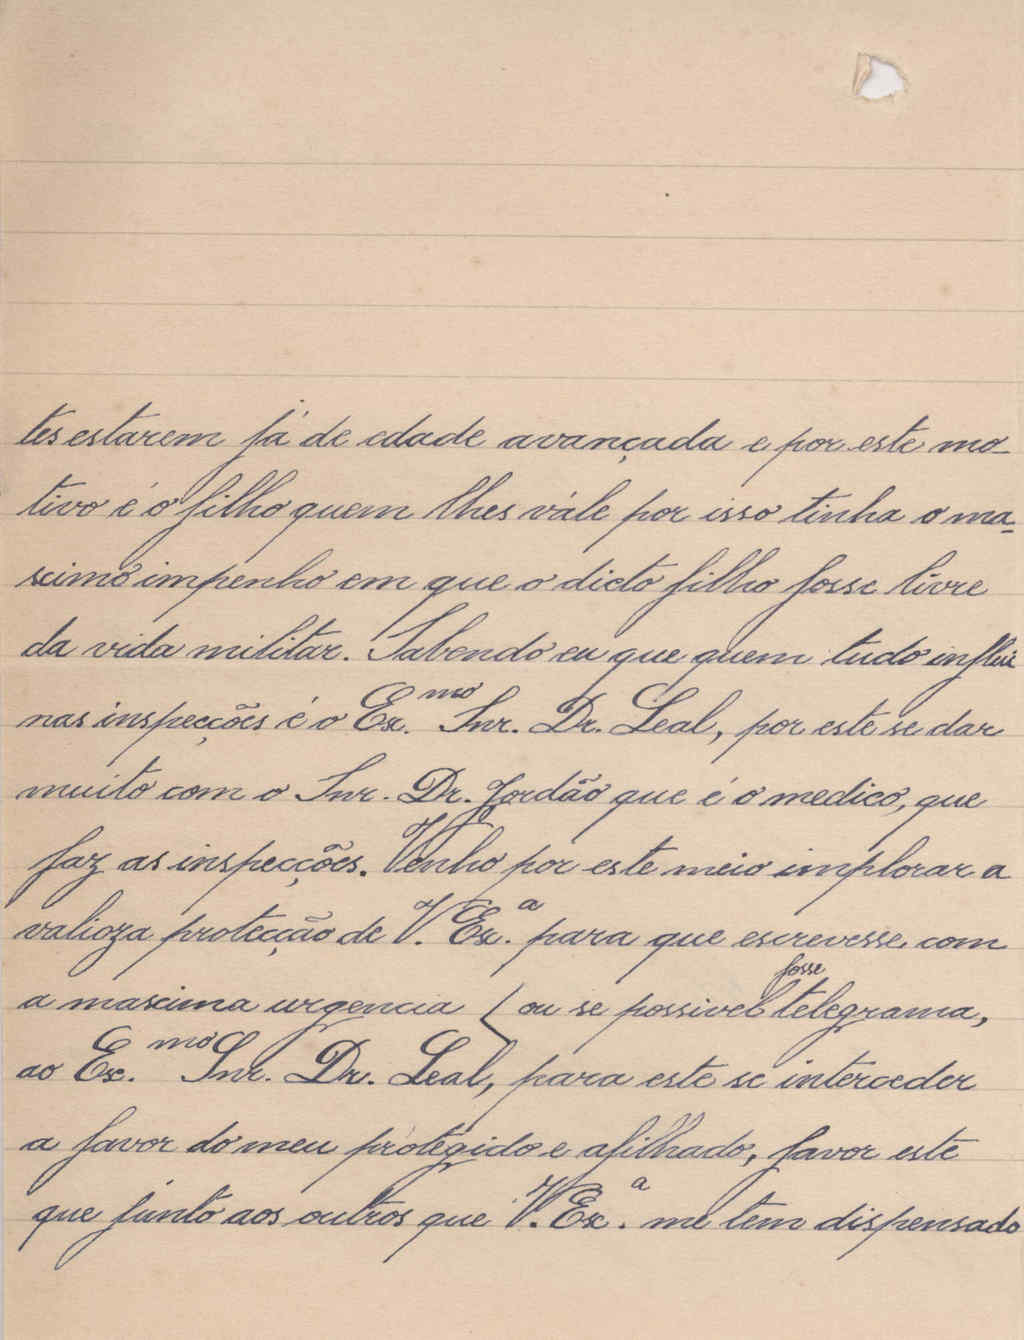 tes estarem já de edade avançada e por este mo-
tivo é o filho quem lhes vále por isso tinha o ma-
ximo impenho em que o dicto filho fosse livre
da vida militar. Sabendo eu que quem tudo influi
nas inspecções é o Ex.mo Snr. Dr. Leal, por este se dar
muito com o Snr. Dr. Jordão que é o medico, que
faz as inspecções. Venho por este meio implorar a
valioza protecção de V. Ex.a para que escrevesse com
fosse
a maxima urgencia (ou se possivel telegrama,
ao Ex.mo Snr. Dr. Leal, para este se interceder
a favor do meu protegido e afilhado, favor este
que junto aos outros que V. Ex.a me tem dispensado